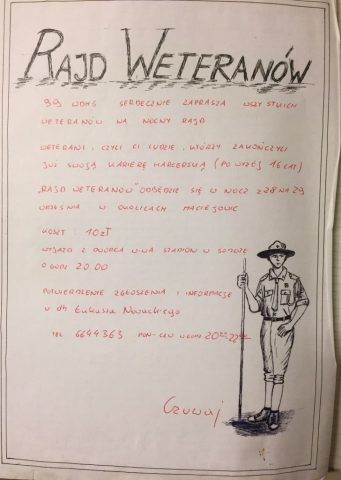 RAJD WETERANÓW
99 WDHS SERDECZNIE ZAPRASZA WSZYSTKICH
WETERANÓW NA NOCNY RAJD
WETERANI, CZYLI CI LUDZIE, KTÓRZY ZAKOŃCZYLI
JUŻ SWOJĄ KARIERĘ HARCERSKĄ (POWYŻEJ 16 LAT)
„RAJD WETERANÓW" ODBĘDZIE SIĘ W NOCY Z 28 NA 29
WRZEŚNIA W OKOLICACH MACIEJOWIC
KOSZT: 10 ZŁ
WYJAZD Z DWORCA W-WA STADION W SOBOTĘ
O GODZ 20.00
POTWIERDZENIE ZGŁOSZENIA I INFORMACJE
U dh Łukasza Nowackiego
TEL 6644363 PON-CZW W GODZ 20⁰⁰-22⁰⁰
Czuwaj